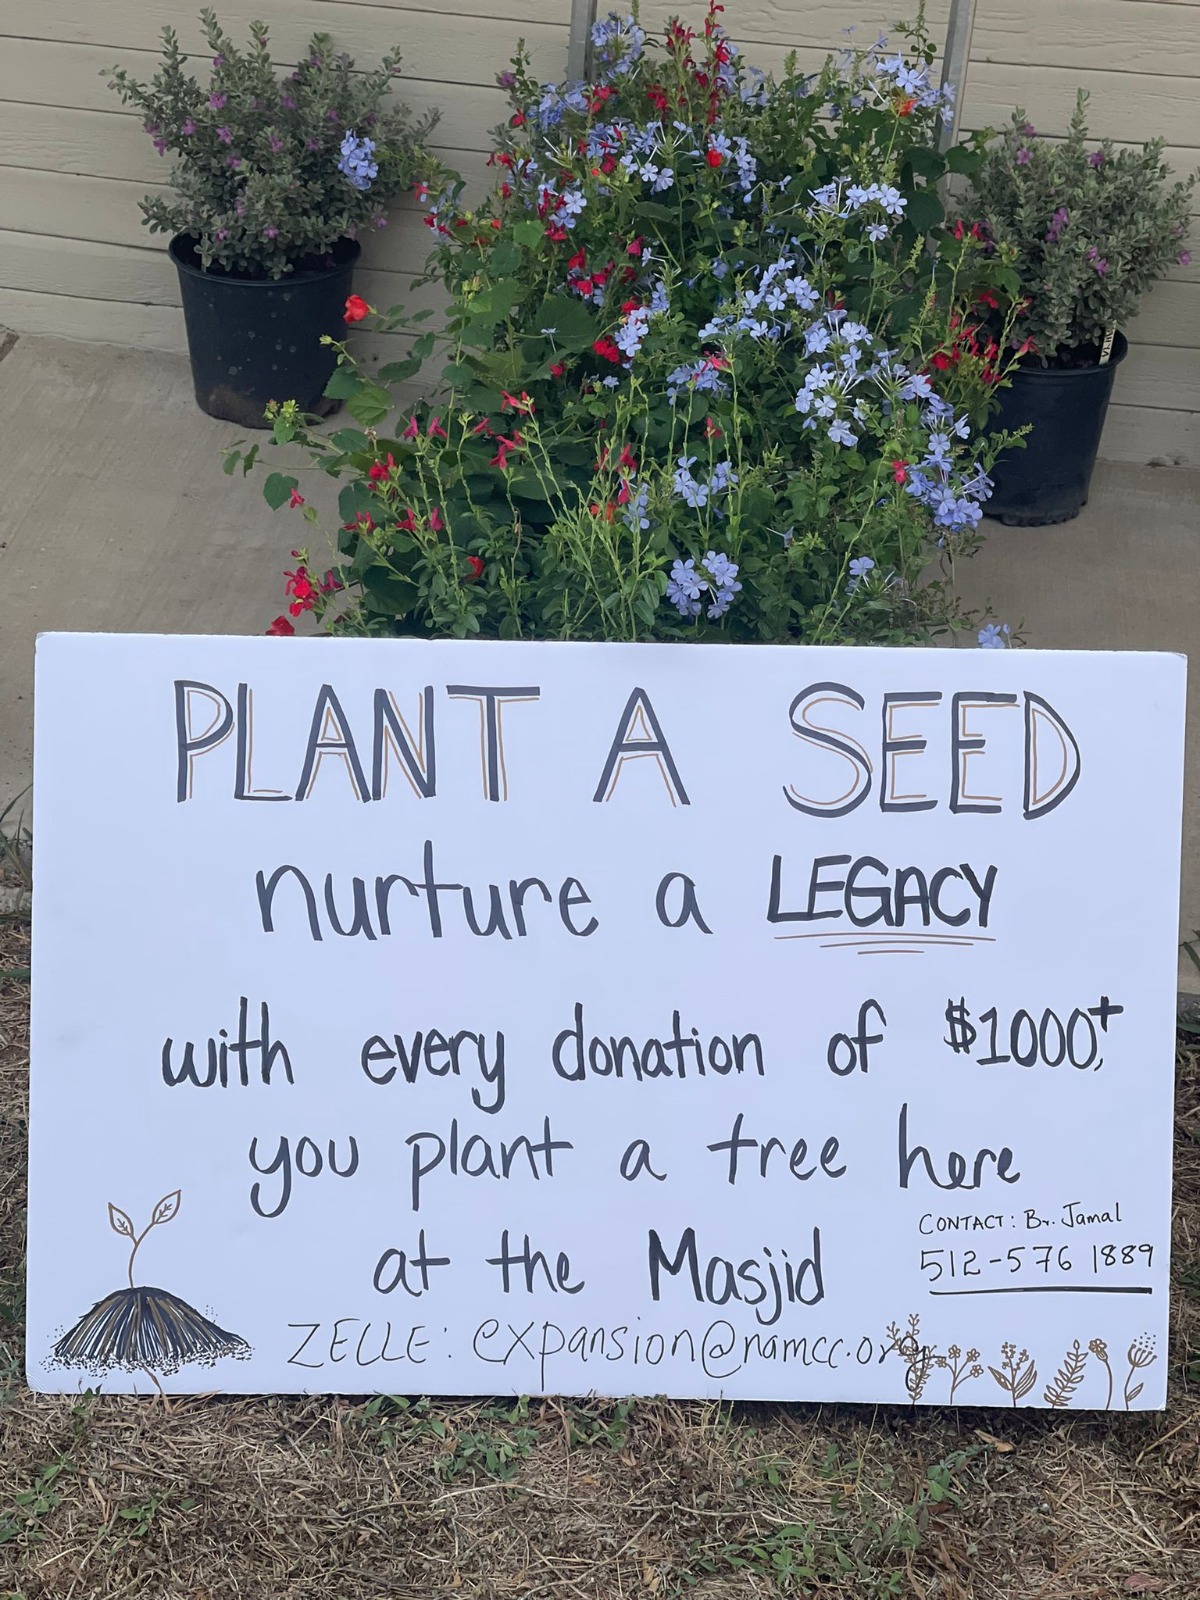 PLANT A SEED
nurture a LEGACY
with every donation of $1000+,
you plant a tree here
at the Masjid
CONTACT: Br. Jamal
512-576 1889
ZELLE: expansion@namcc.org